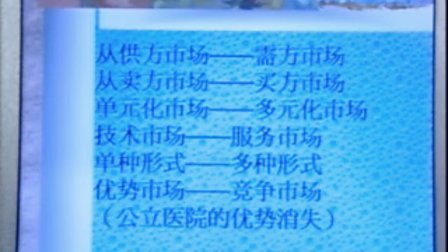 从供方市场——需方市场
从卖方市场——买方市场
单元化市场——多元化市场
技术市场——服务市场
单种形式——多种形式
优势市场——竞争市场
（公立医院的优势消失）